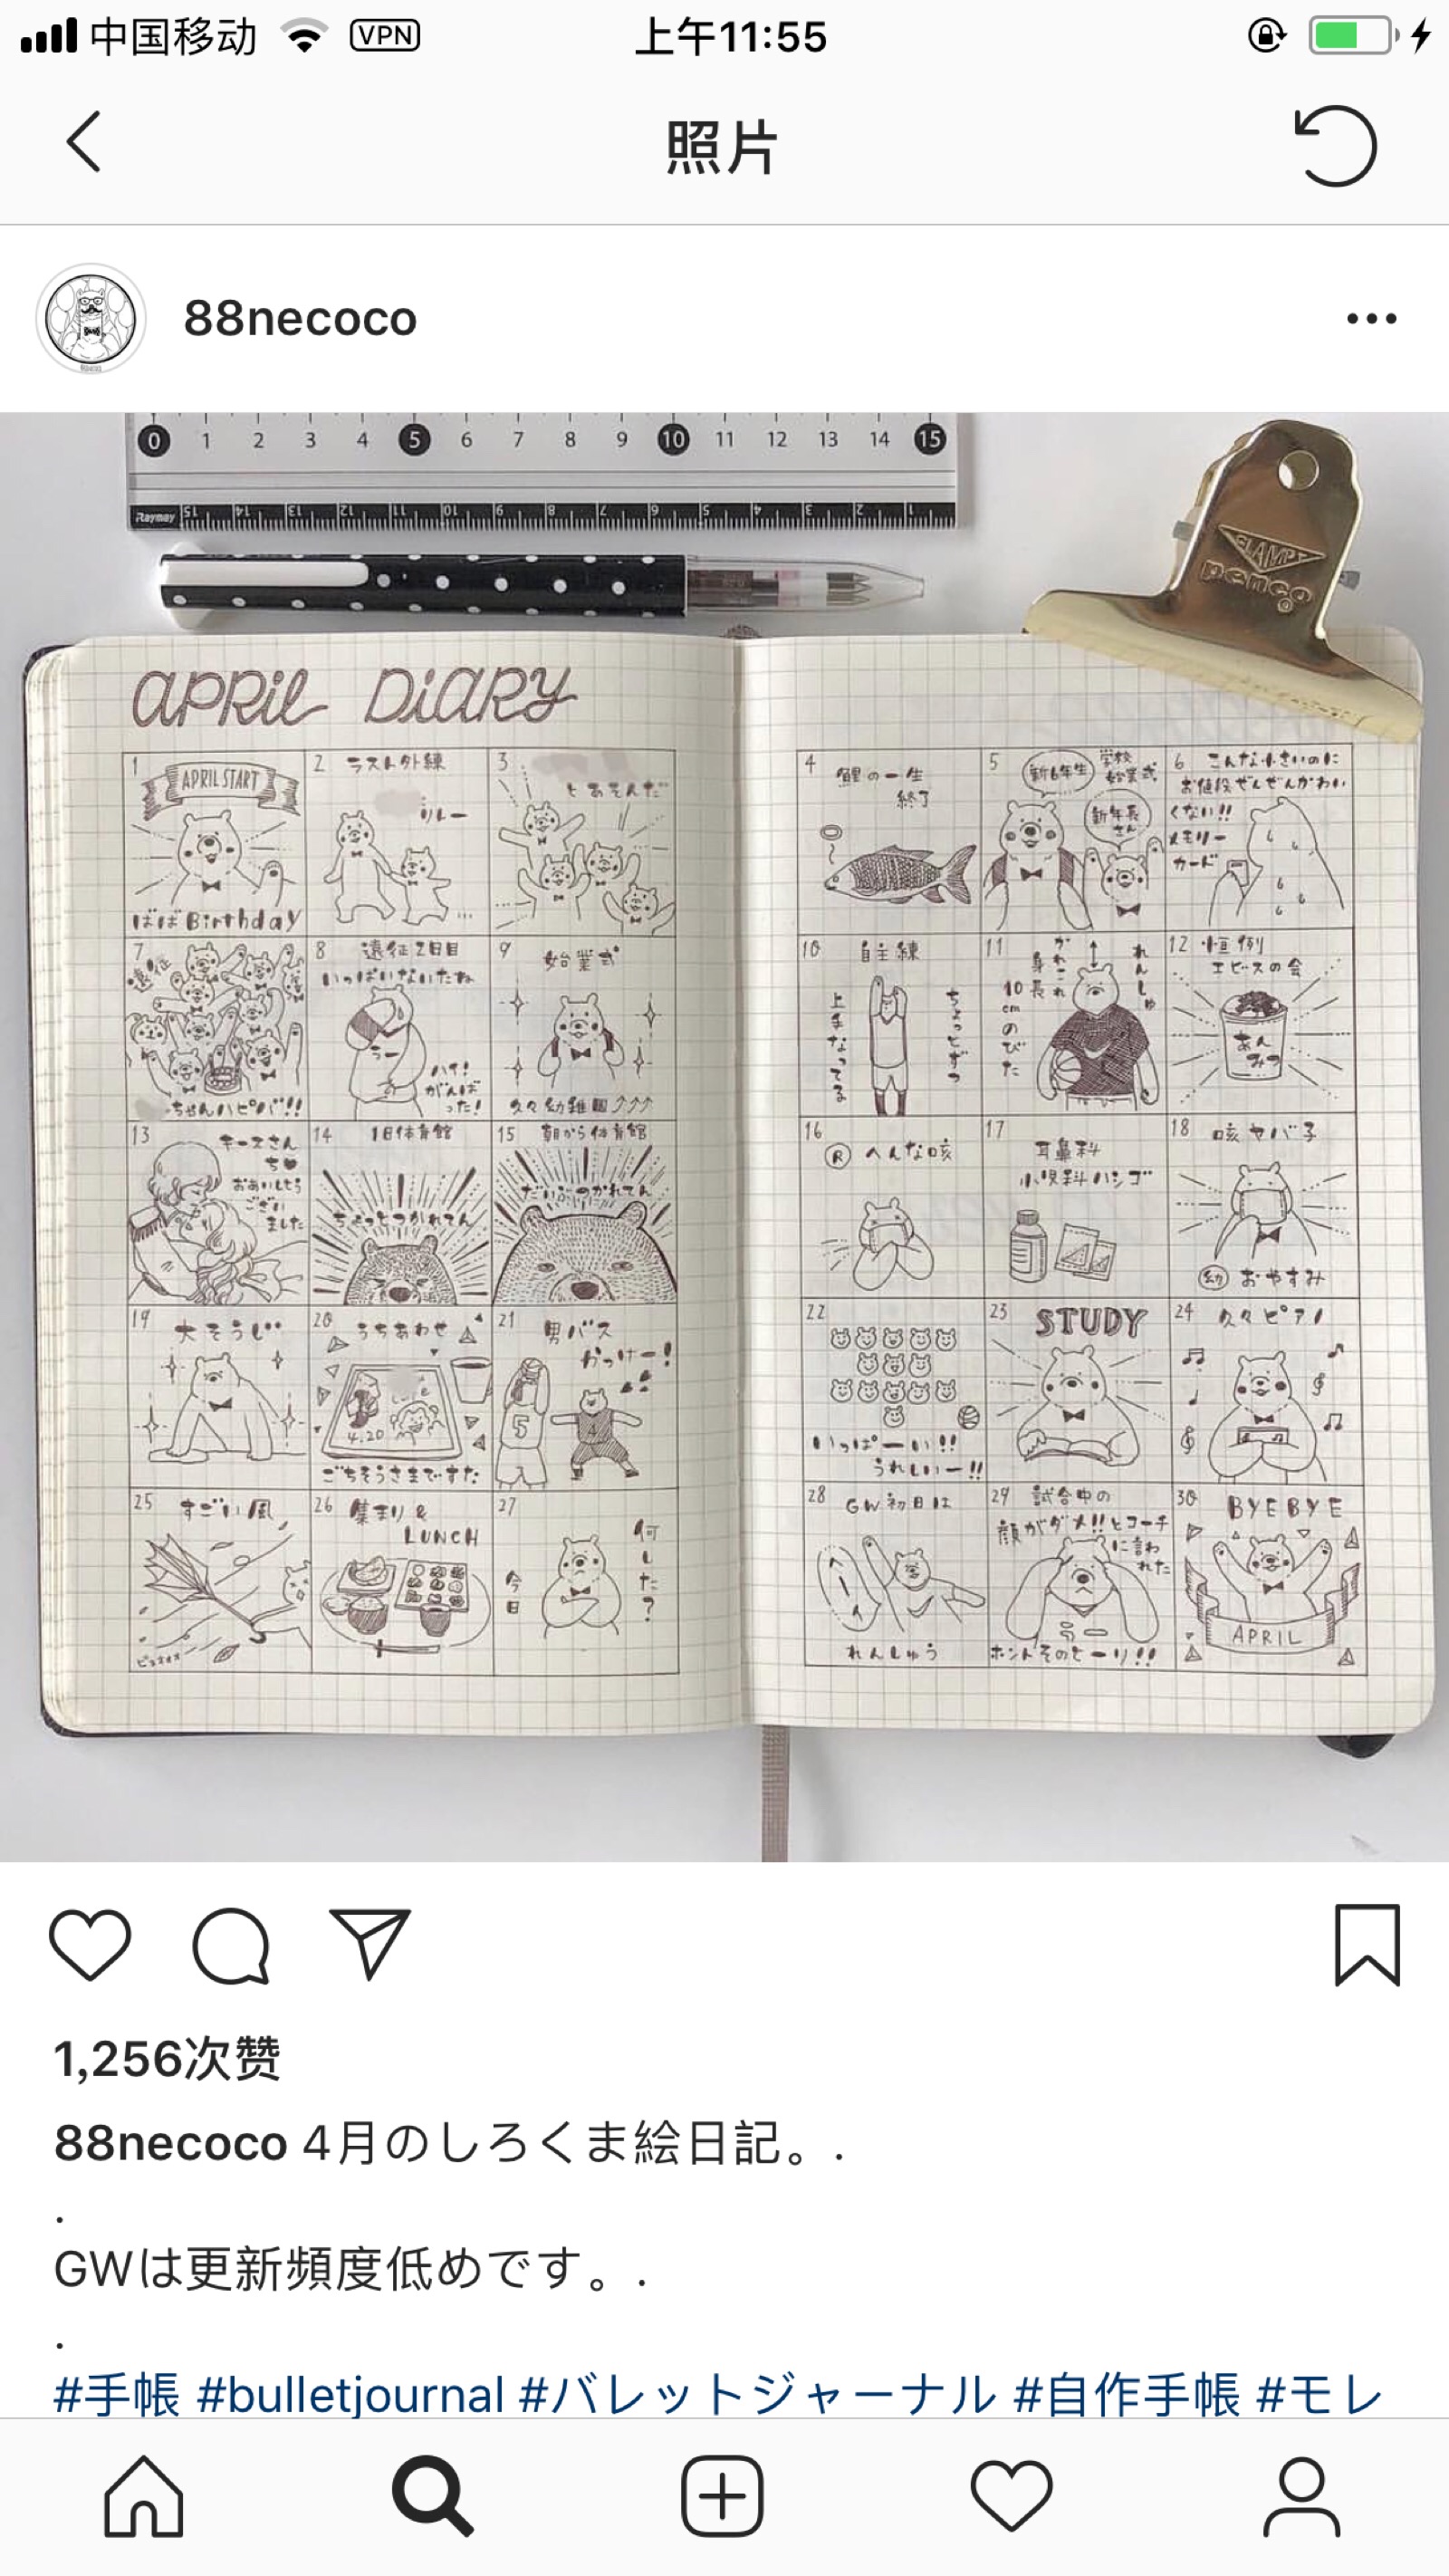 中国移动 VPN 上午11:55
照片
88necoco
0 1 2 3 4 5 6 7 8 9 10 11 12 13 14 15
Raymay 15 14 13 12 11 10 9 8 7 6 5 4 3 2 1
CLAMPS
penco
APRIL DIARY
1
APRIL START
ばぁばBirthday
2 ラスト外練
リレー
3
とあそんだ
4 鯉の一生
終了
5 新6年生 学校
始業式
新年長
さん
6 こんな小さいのに
お値段ぜんぜんかわい
くない!!
メモリー
カード
7 遠征
ちゃんハピバ!!
8 遠征2日目
いっぱいないたね
うー
ハイ!
がんば
った!
9 始業式
久々幼稚園
10 自主練
ちょっとずつ
上手なってる
11
れんしゅ
かわこれ
身長
10cmのびた
12 恒例
エビスの会
あん
みつ
13 キースさん
ち
おあいしとう
ござい
ました
14 1日体育館
ちょっとつかれてん
15 朝から体育館
だいぶつかれてん
16
R へんな咳
17 耳鼻科
小児科ハシゴ
18 咳ヤバ子
幼 おやすみ
19 大そうじ
20 うちあわせ
4.20
ごちそうさまですた
21 男バス
かっけー!
5
4
22
いっぱーい!!
うれしいー!!
23 STUDY
24 久々ピアノ
25 すごい風
ビュオオオ
26 集まり&
LUNCH
27
何した?
今日
28 GW初日は
れんしゅう
29 試合中の
顔がダメ!!とコーチ
に言わ
れた
ホントそのとーり!!
30 BYEBYE
APRIL
1,256次赞
88necoco 4月のしろくま絵日記。.
.
GWは更新頻度低めです。.
.
#手帳 #bulletjournal #バレットジャーナル #自作手帳 #モレ